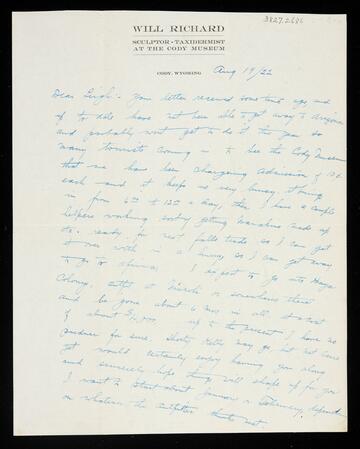 3827.2686
WILL RICHARD
SCULPTOR - TAXIDERMIST
AT THE CODY MUSEUM
CODY, WYOMING
Aug 19/22
Dear Leigh - Your letter received some time ago and
up to date have not been able to get away to
and probably won't get to do it this year so
many tourists coming in to see the Cody Museum
that we have been charging admission of
each and it keeps us very busy. It brings
in from to a day, then I have a couple
helpers working getting made up
etc. ready for next falls trade so I can get
it over with in a hurry so I can get away
to go to Africa I expect to go into Kenya
Colony, at Nairobi or somewhere there
and be gone about 6 mos in all, at a cost
of about up to the present I have no
partner for sure. Shorty Kelly may go, but not sure
yet would certainly enjoy having you along
and sincerely hope things will shape up for you
I want to start about January or February, depend
on whatever the outfitter thinks best.